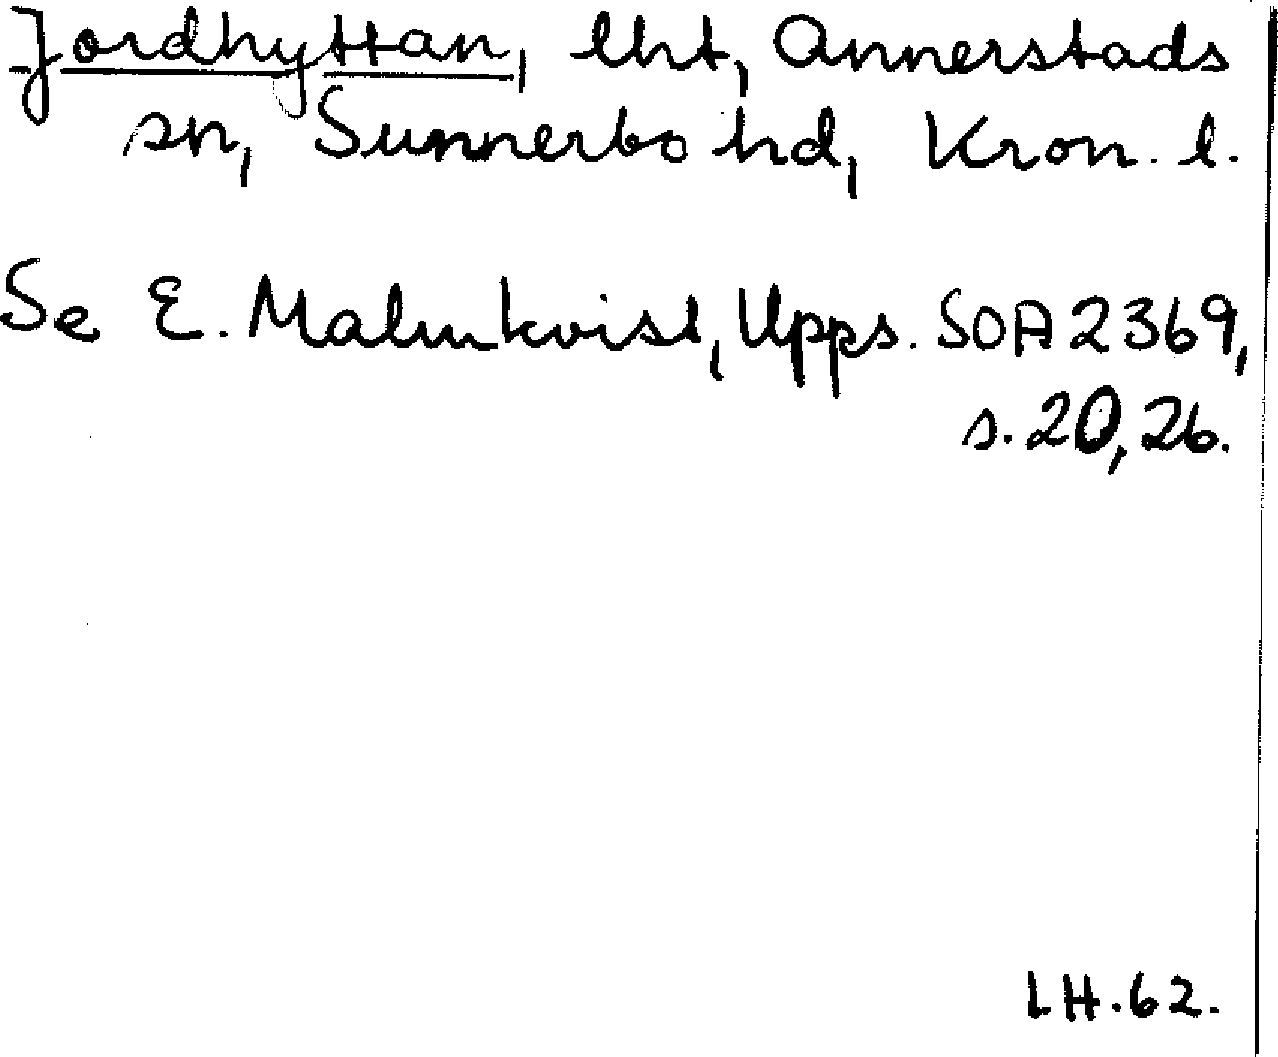 Jordhyttan, lht, Annerstads
sn, Sunnerbo hd, Kron. l.
Se E. Malmkvist, Upps. SOA 2369,
s. 20, 26.
LH. 62.